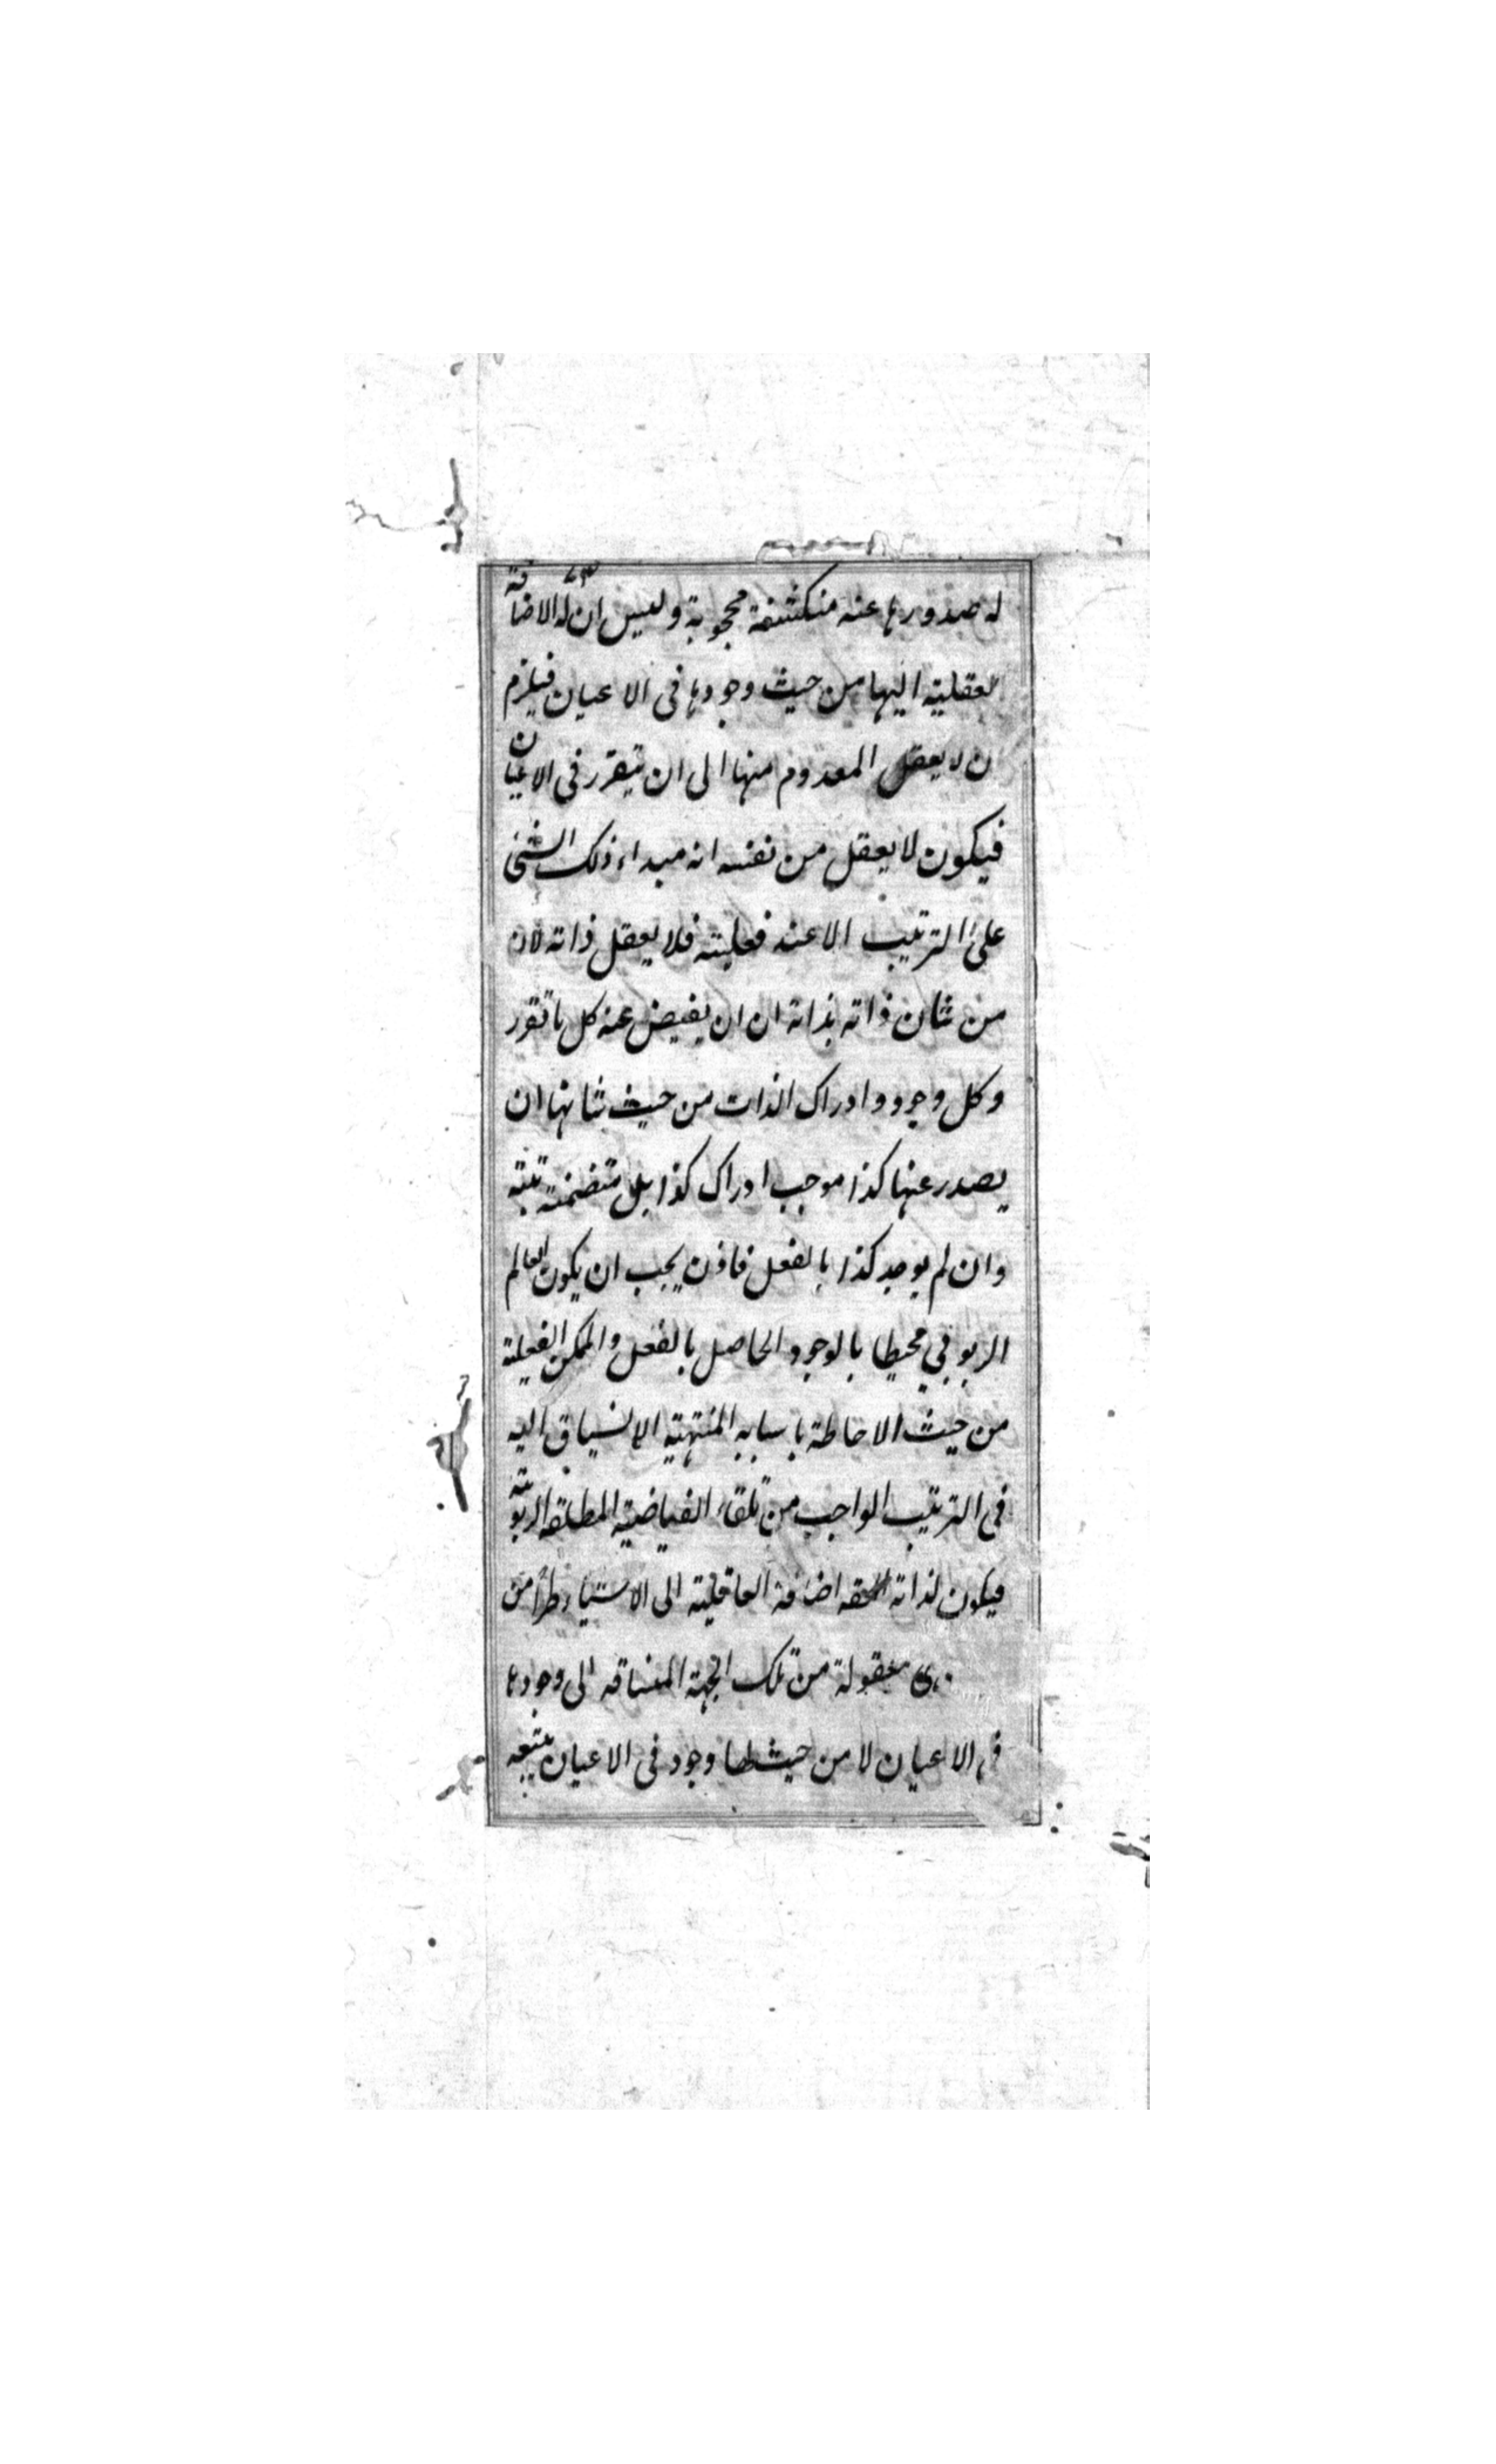 له صدورها عنه منكشفة محجوبة وليس ان له الاضافة
لعقلية اليها من حيث وجودها فى الاعيان فيلزم
ن لا يعقل المعدوم منها الى ان يتقرر فى الاعيان
فيكون لا يعقل من نفسه انه مبداء ذلك الشئ
على الترتيب الا عند فعليته فلا يعقل ذاته لان
من شان ذاته بذاته ان ان يفيض عنه كل ما تقرر
وكل وجود وادراك الذات من حيث شانها ان
يصدر عنها كذا موجب ادراك كذا بل متضمنه تبته
وان لم يوجد كذا بالفعل فاذن يجب ان يكون العالم
الربوبي محيطا بالوجود الحاصل بالفعل والممكن الفعلية
من حيث الاحاطة باسبابه المنتهية الانسياق اليه
فى الترتيب الواجب من تلقاء الفياضية المطلقه الربوبية
فيكون لذاته الحقه اضافة العاقلية الى الاشياء طرا من
هى معقولة من تلك الجهة المنساقه الى وجودها
فى الاعيان لا من حيث لها وجود فى الاعيان يتبعه